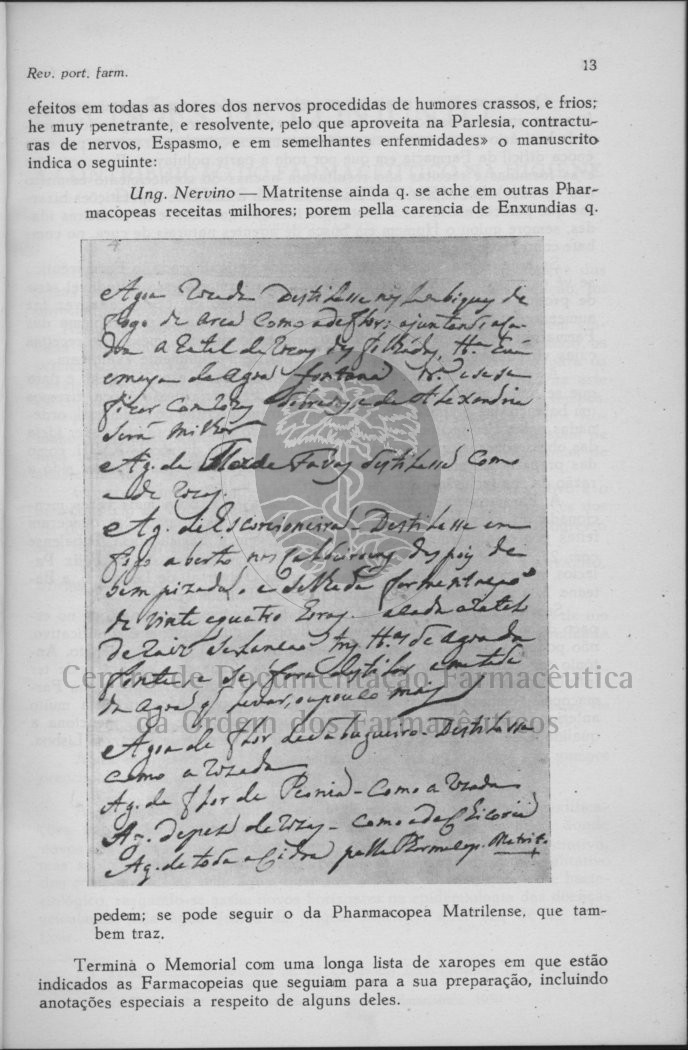 Rev. port. farm.
13
efeitos em todas as dores dos nervos procedidas de humores crassos, e frios;
he muy penetrante, e resolvente, pelo que aproveita na Parlesia, contractu-
ras de nervos, Espasmo, e em semelhantes enfermidades» o manuscrito
indica o seguinte:
Ung. Nervino — Matritense ainda q. se ache em outras Phar-
macopeas receitas milhores; porem pella carencia de Enxundias q.
Agoa Rozada Destilasse
fogo de area Como a de flor; ajuntando
a Ratel de Rozas
de agoa fontana
ficar com Rozas e de Alexandria
será milhor
Ag. de Favas destilasse Como
a de Rozas.
Ag. de Escorcioneira - Destilasse em
fogo aberto nos depois de
bem pizada, e
de vinte e quatro horas. a Ratel
de Raiz de agoa da
fonte e se fora metade
da agoa q levar, ou pouco mais
Agoa de flor de Destilasse
como a Rozada
Ag. de flor de Peonia - Como a Rozada
Ag. de Rozas - como a de Chicoria
Ag. de toda a Cidra pella Pharmacop. Matrit.
Centro de Documentação Farmacêutica
da Ordem dos Farmacêuticos
pedem; se pode seguir o da Pharmacopea Matrilense, que tam-
bem traz.
Termina o Memorial com uma longa lista de xaropes em que estão
indicados as Farmacopeias que seguiam para a sua preparação, incluindo
anotações especiais a respeito de alguns deles.